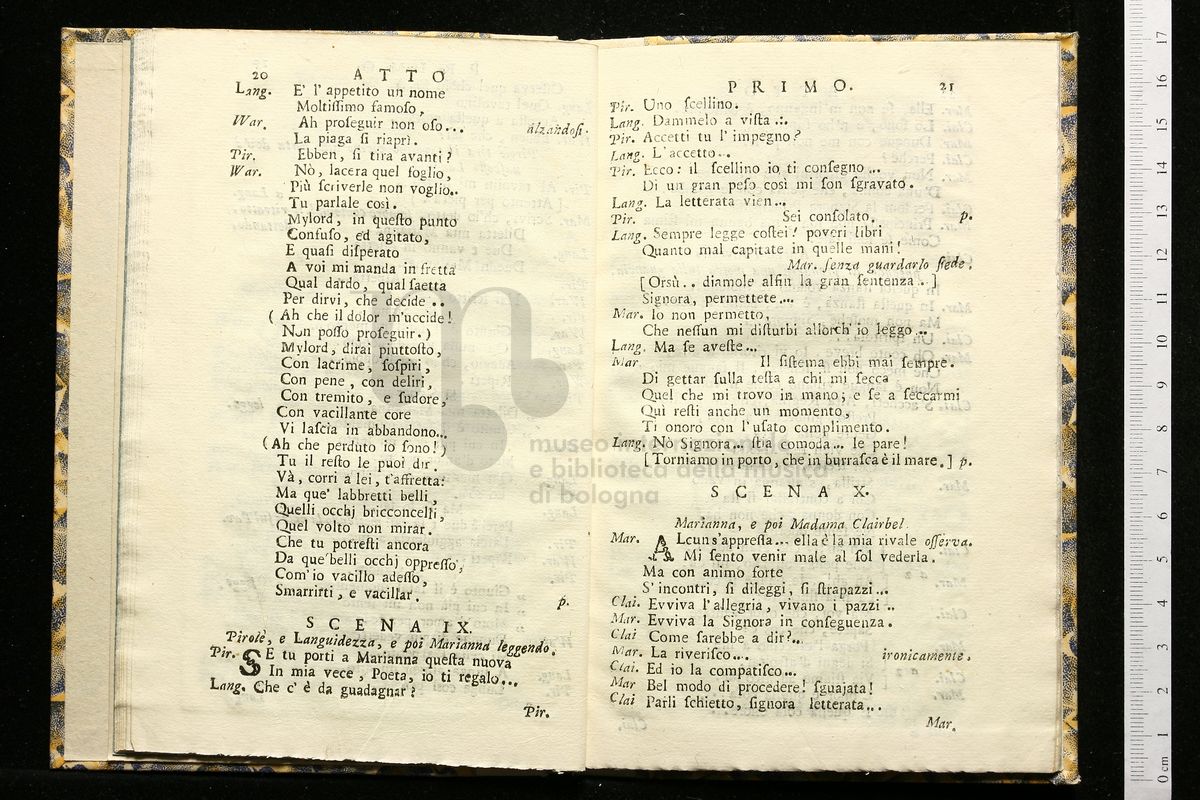 20 ATTO
Lang. E' l' appetito un nome
Moltiſſimo famoſo,
War. Ah proſeguir non oſo... alzandoſi.
La piaga ſi riaprì.
Pir. Ebben, ſi tira avanti?
War. Nò, lacera quel foglio,
Più ſcriverle non voglio..
Tu parlale così.
Mylord, in queſto punto
Confuſo, ed agitato,
E quaſi diſperato
A voi mi manda in fretta
Qual dardo, qual ſaetta
Per dirvi, che decide ..
( Ah che il dolor m'uccide!
Non poſſo proſeguir. )
Mylord, dirai piuttoſto,
Con lacrime, ſoſpiri,
Con pene, con deliri,
Con tremito, e ſudore,
Con vacillante core
Vi laſcia in abbandono...
( Ah che perduto io ſono! )
Tu il reſto le puoi dir.
Và, corri a lei, t'affretta:
Ma que' labbretti belli,
Quelli occhj bricconcelli,
Quel volto non mirar.
Che tu potreſti ancora
Da que'belli occhj oppreſſo,
Com'io vacillo adeſſo,
Smarrirti, e vacillar. p.
SCENA IX.
Pirotè, e Languidezza, e poi Marianna leggendo.
Pir. SE tu porti a Marianna queſta nuova
In mia vece, Poeta, io ti regalo...
Lang. Che c' è da guadagnar?
Pir.
PRIMO. 21
Pir. Uno ſcellino.
Lang. Dammelo a viſta .:.
Pir. Accetti tu l' impegno?
Lang. L' accetto...
Pir. Ecco: il ſcellino io ti conſegno ...
Di un gran peſo così mi ſon ſgravato.
Lang. La letterata vien...
Pir. Sei conſolato. p.
Lang. Sempre legge coſtei! poveri libri
Quanto mal capitate in quelle mani!
Mar. ſenza guardarlo ſiede.
[Orsù.. diamole alfin la gran ſentenza ..]
Signora, permettete...
Mar. Io non permetto,
Che neſſun mi diſturbi allorch' io leggo ..
Lang. Ma ſe aveſte...
Mar Il ſiſtema ebbi mai ſempre.
Di gettar ſulla teſta a chi mi ſecca
Quel che mi trovo in mano; e ſe a ſeccarmi
Quì reſti anche un momento,
Ti onorò con l'uſato complimento.
Lang. Nò Signora... ſtia comoda... le pare!
[Torniamo in porto, che in burraſca è il mare.] p.
SCENA X.
Marianna, e poi Madama Clairbel.
Mar. ALcun s'appreſta... ella è la mia rivale oſſerva.
Mi ſento venir male al ſol vederla.
Ma con animo forte
S' incontri, ſi dileggi, ſi ſtrapazzi...
Clai. Evviva l'allegria, vivano i pazzi ..
Mar. Evviva la Signora in conſeguenza.
Clai Come ſarebbe a dir?..
Mar. La riveriſco.... ironicamente.
Clai. Ed io la compatiſco...
Mar Bel modo di procedere! ſguajata!
Clai Parli ſchietto, ſignora letterata...
Mar.
museo internazionale
e biblioteca della musica
di bologna
0 cm 1 2 3 4 5 6 7 8 9 10 11 12 13 14 15 16 17